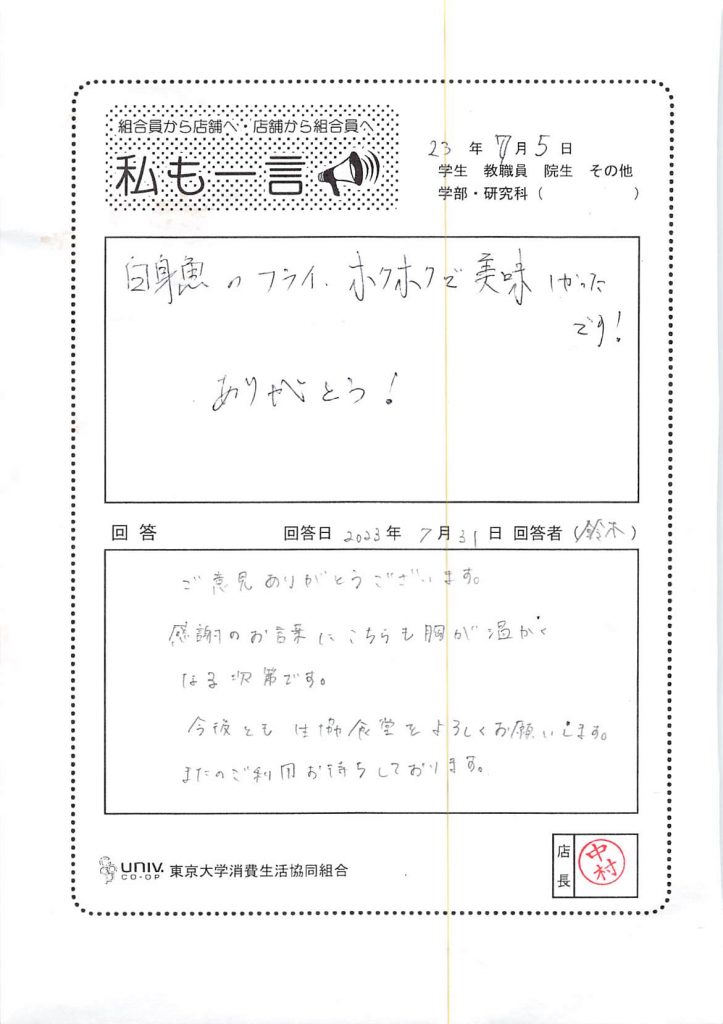 組合員から店舗へ・店舗から組合員へ
私も一言
23 年 7月 5 日
学生 教職員 院生 その他
学部・研究科( )
白身魚のフライ、ホクホクで美味しかった
です!
ありがとう!
回答 回答日 2023年 7月31日 回答者(鈴木)
ご意見ありがとうございます。
感謝のお言葉にこちらも胸が温かく
なる次第です。
今後とも生協食堂をよろしくお願いします。
またのご利用お待ちしております。
UNIV. CO-OP 東京大学消費生活協同組合
店長 中村